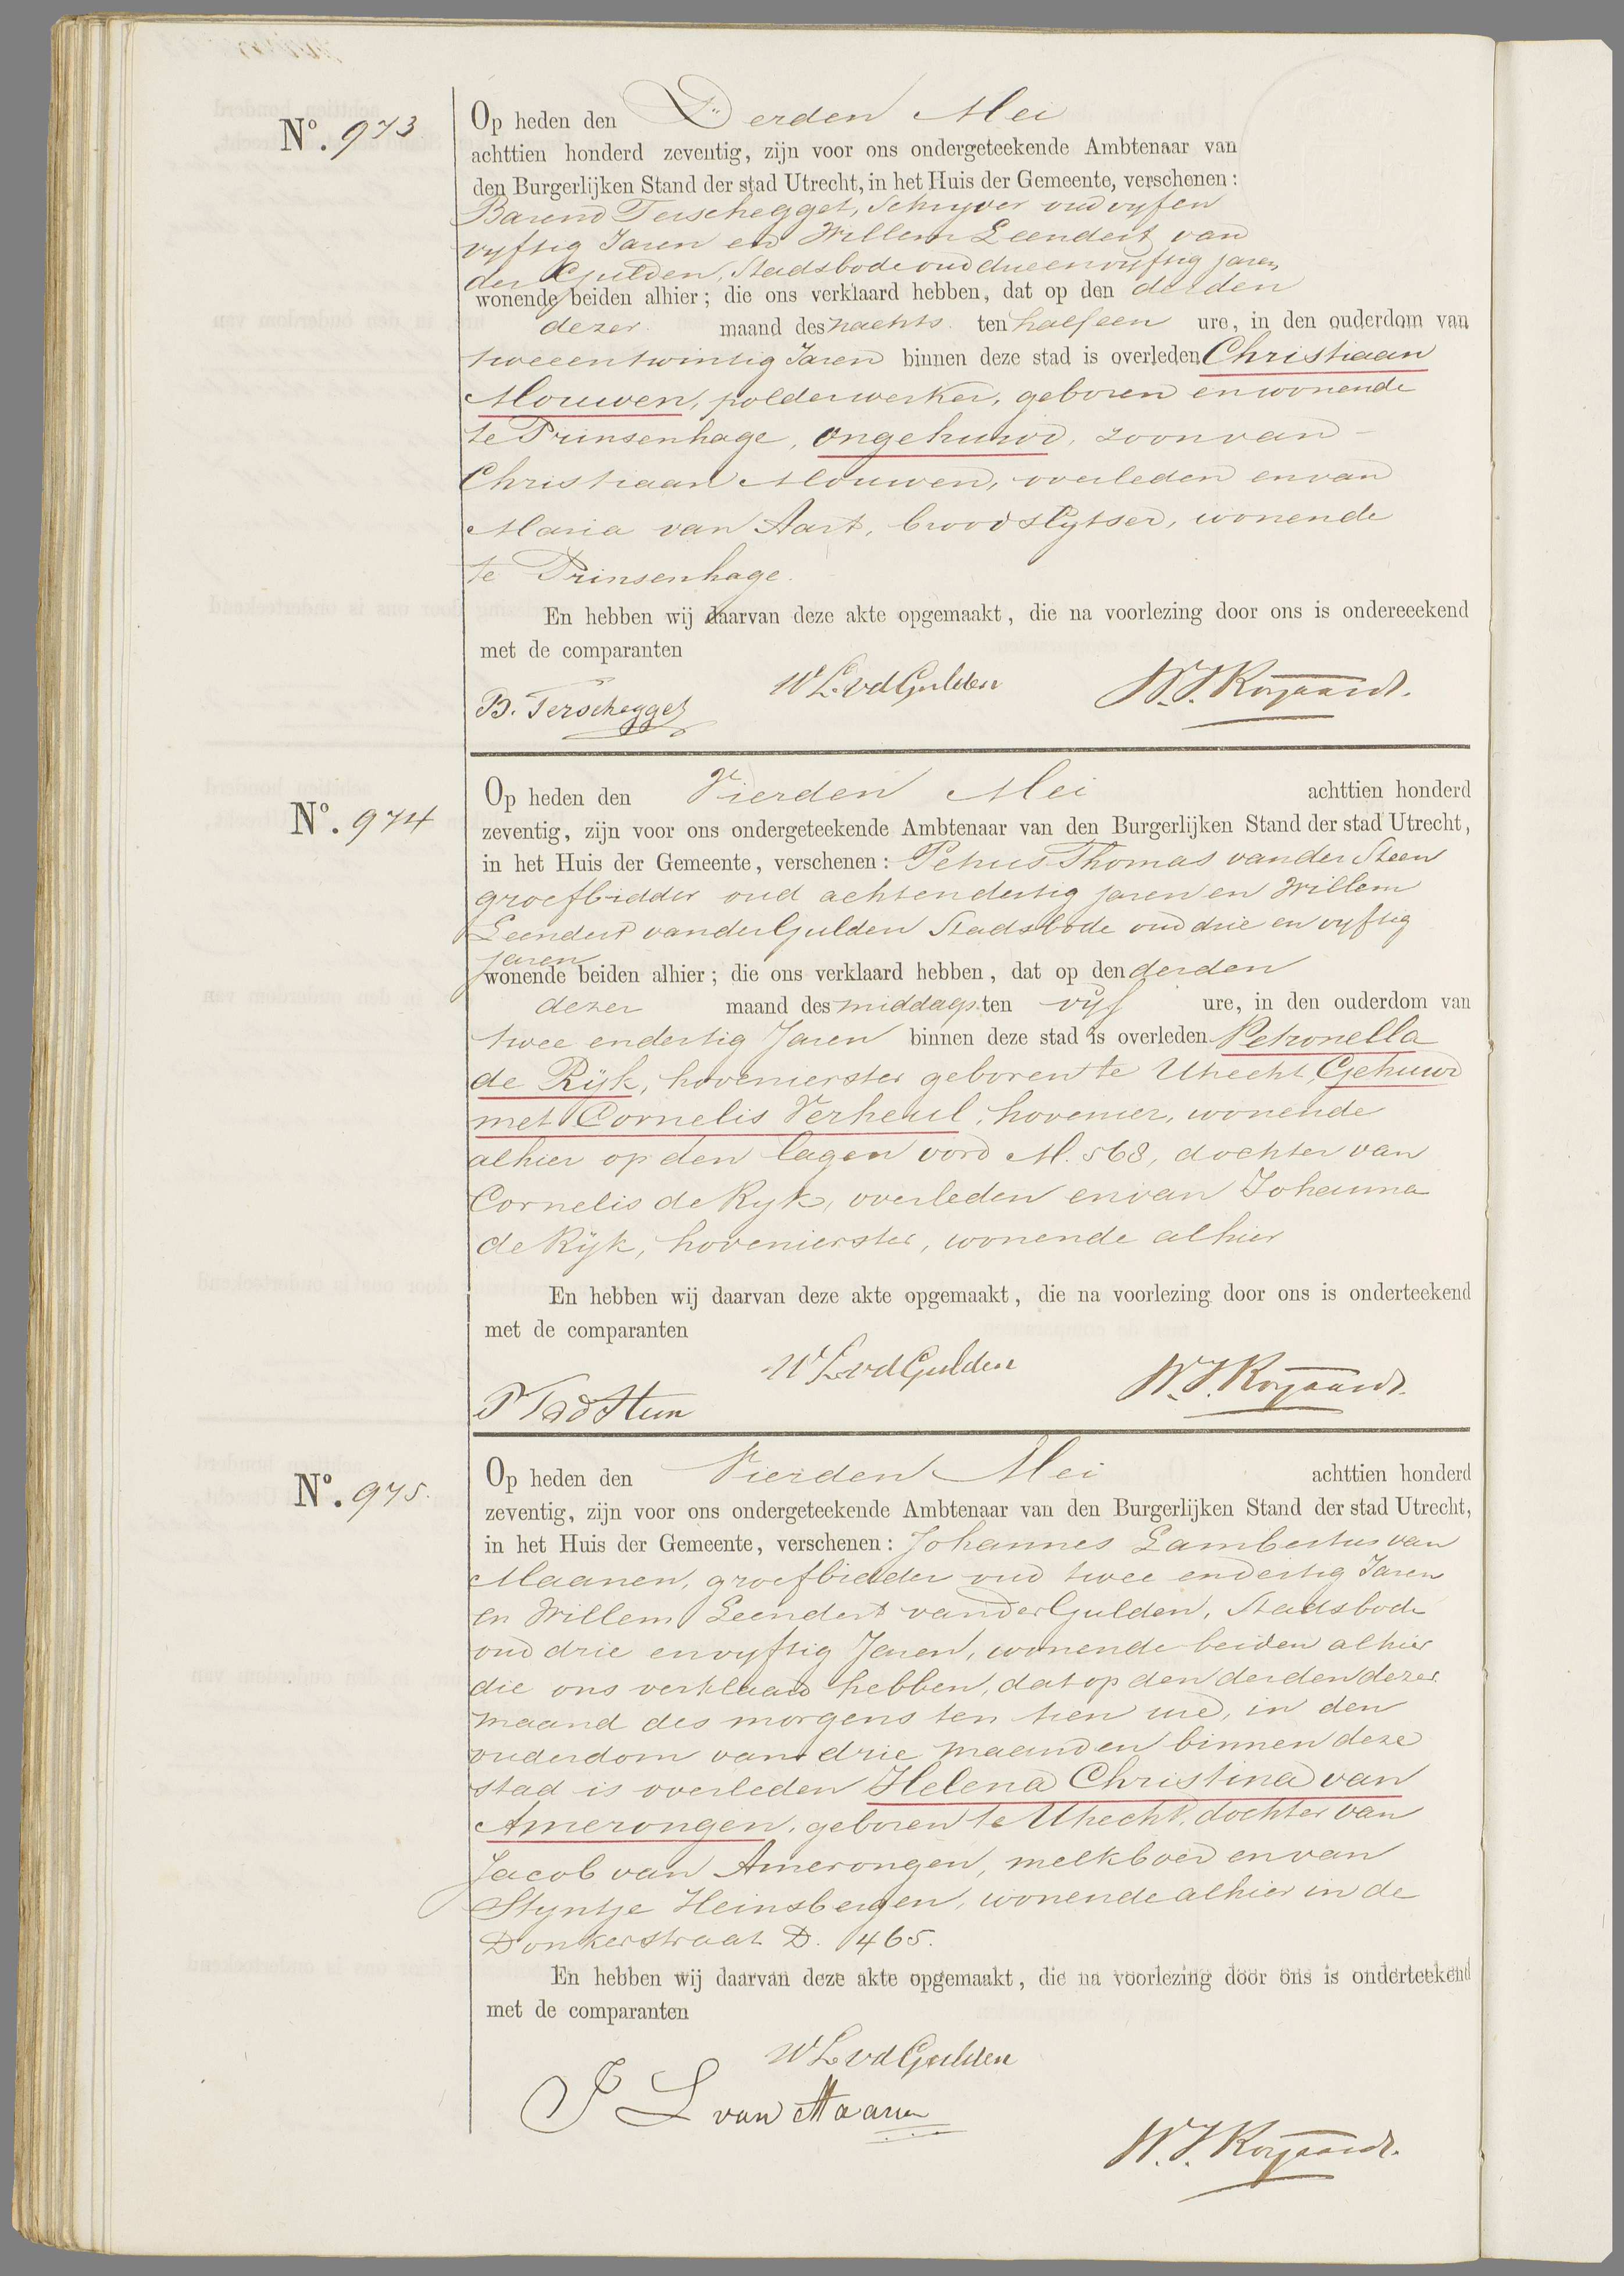 Nº. 973
Op heden den Derden Mei
achttien honderd zeventig, zijn voor ons ondergeteekende Ambtenaar van
den Burgerlijken Stand der stad Utrecht, in het Huis der Gemeente, verschenen:
Barend Terschegget, Schryver oud vyfen
vyftig Jaren en Willem Leendert van
der Gulden, Stadsbode oud drieenvyftig jaren
wonende beiden alhier; die ons verklaard hebben, dat op den derden
dezer maand des nachts ten half een ure, in den ouderdom van
tweeentwintig Jaren binnen deze stad is overleden Christiaan
Mouwen, polderwerker, geboren en wonende
te Prinsenhage, ongehuwd, zoon van -
Christiaan Mouwen, overleden en van
Maria van Aart, broodslytser, wonende
te Prinsenhage.
En hebben wij daarvan deze akte opgemaakt, die na voorlezing door ons is ondereeekend
met de comparanten
B. Terschegget
W L. vd Gulden
Nº. 974
Op heden den Vierden Mei achttien honderd
zeventig, zijn voor ons ondergeteekende Ambtenaar van den Burgerlijken Stand der stad Utrecht,
in het Huis der Gemeente, verschenen: Petrus Thomas van der Steen
groefbidder oud achtendertig jaren en Willem
Leendert van der Gulden Stadsbode oud drie en vyftig
jaren
wonende beiden alhier; die ons verklaard hebben, dat op den derden
dezer maand des middags ten vijf ure, in den ouderdom van
twee endertig Jaren binnen deze stad is overleden Petronella
de Rijk, hovenierster geboren te Utrecht, Gehuwd
met Cornelis Verheul, hovenier, wonende
alhier op den lagen oord M. 568, dochter van
Cornelis de Ryk, overleden en van Johanna
de Rijk, hovenierster, wonende alhier
En hebben wij daarvan deze akte opgemaakt, die na voorlezing door ons is onderteekend
met de comparanten
W L vd Gulden
Nº. 975.
Op heden den Vierden Mei achttien honderd
zeventig, zijn voor ons ondergeteekende Ambtenaar van den Burgerlijken Stand der stad Utrecht,
in het Huis der Gemeente, verschenen: Johannes Lambertus van
Maanen, groefbidder oud twee endertig Jaren
en Willem Leendert van der Gulden, Stadsbode
oud drie envyftig Jaren, wonende beiden alhier
die ons verklaard hebben, dat op den derden dezer
maand des morgens ten tien ure, in den
ouderdom van drie maanden binnen deze
stad is overleden Helena Christina van
Amerongen, geboren te Utrecht, dochter van
Jacob van Amerongen, melkboer en van
Styntje Heinsbergen, wonende alhier in de
Donkerstraat D. 465.
En hebben wij daarvan deze akte opgemaakt, die na voorlezing door ons is onderteekend
met de comparanten
W L vd Gulden
J L van Maanen